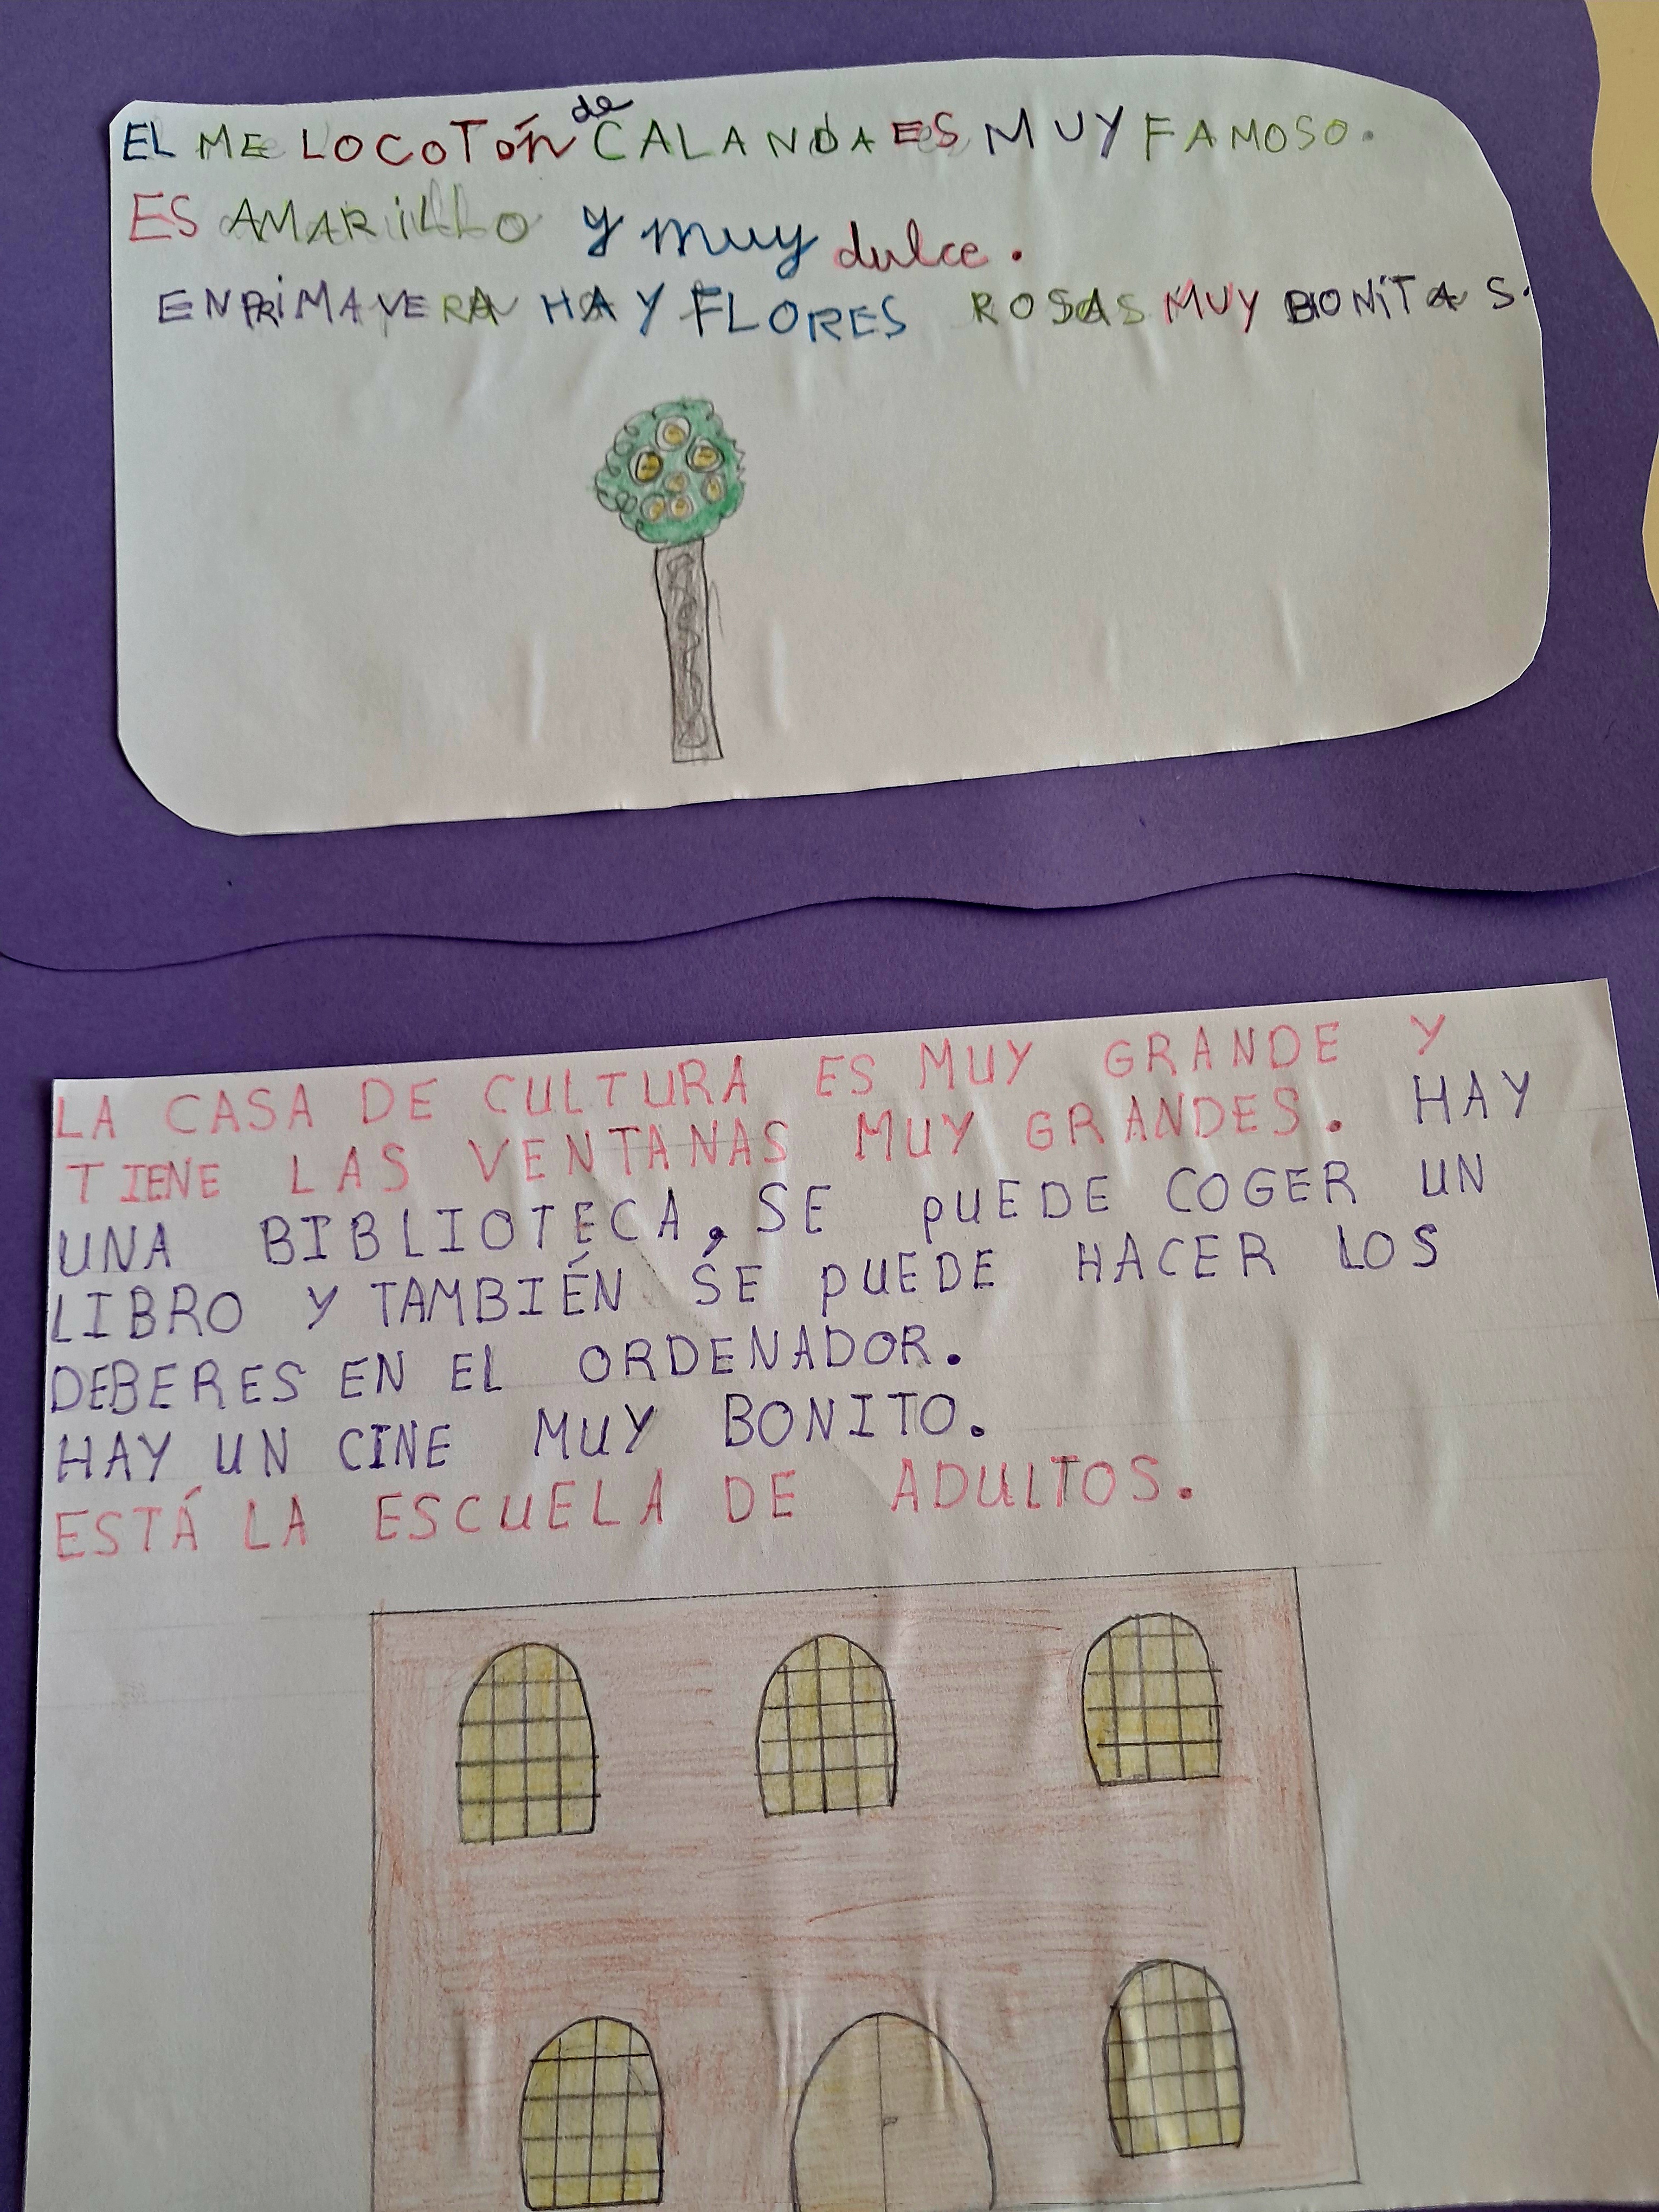 EL MELOCOTÓN de CALANDA ES MUY FAMOSO.
ES AMARiLLO y muy dulce.
EN PRiMAVERA HAY FLORES ROSAS MUY BONíTAS.
LA CASA DE CULTURA ES MUY GRANDE Y
TIENE LAS VENTANAS MUY GRANDES. HAY
UNA BIBLIOTECA, SE PUEDE COGER UN
LIBRO Y TAMBIÉN SE PUEDE HACER LOS
DEBERES EN EL ORDENADOR.
HAY UN CINE MUY BONITO.
ESTÁ LA ESCUELA DE ADULTOS.